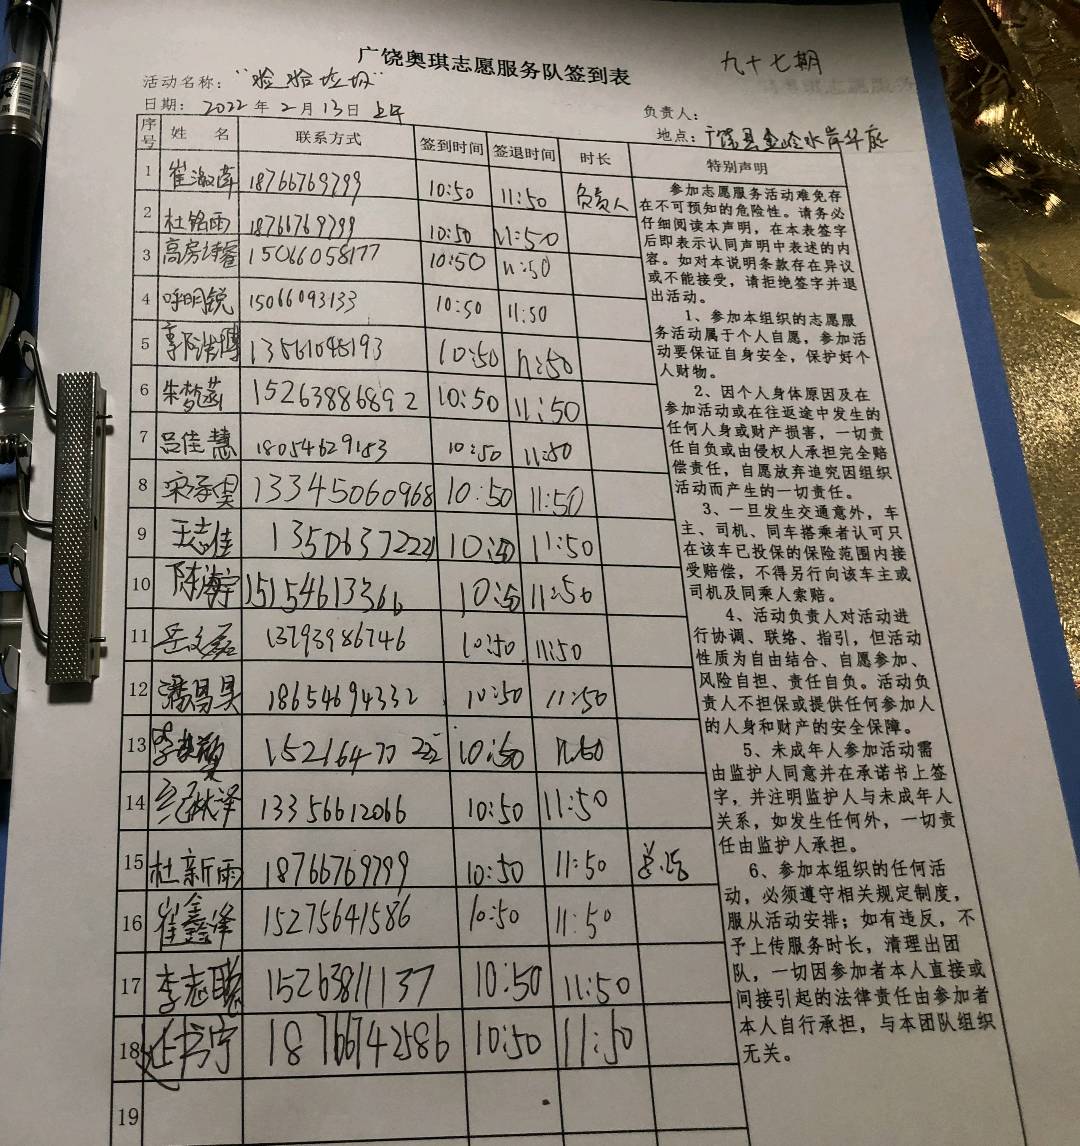 广饶奥琪志愿服务队签到表 九十七期
活动名称:“捡拾垃圾”
日期: 2022年2月13日上午 负责人:
地点:广饶县金岭水岸华庭
序号 姓 名 联系方式 签到时间 签退时间 时长 特别声明
1 崔 18766769799 10:50 11:50 负责人
2 杜铭雨 18766769799 10:50 11:50
3 高房 15066058177 10:50 11:50
4 呼明锐 15066093133 10:50 11:50
5 郭浩博 13561045193 10:50 11:50
6 朱梦菡 15263886892 10:50 11:50
7 吕佳慧 18054629183 10:50 11:50
8 宋承昊 13345060968 10:50 11:50
9 王志佳 13506372221 10:50 11:50
10 陈海宇 15154613366 10:50 11:50
11 岳文磊 13793986746 10:50 11:50
12 潘昌昊 18654694332 10:50 11:50
13 李 10:50 11:50
14 13356612066 10:50 11:50
15 杜新雨 18766769799 10:50 11:50
16 崔鑫泽 15275641586 10:50 11:50
17 李志聪 15263811137 10:50 11:50
18 书宁 18766742586 10:50 11:50
19
参加志愿服务活动难免存
在不可预知的危险性。请务必
仔细阅读本声明，在本表签字
后即表示认同声明中表述的内
容。如对本说明条款存在异议
或不能接受，请拒绝签字并退
出活动。
1、参加本组织的志愿服
务活动属于个人自愿，参加活
动要保证自身安全，保护好个
人财物。
2、因个人身体原因及在
参加活动或在往返途中发生的
任何人身或财产损害，一切责
任自负或由侵权人承担完全赔
偿责任，自愿放弃追究因组织
活动而产生的一切责任。
3、一旦发生交通意外，车
主、司机、同车搭乘者认可只
在该车已投保的保险范围内接
受赔偿，不得另行向该车主或
司机及同乘人索赔。
4、活动负责人对活动进
行协调、联络、指引，但活动
性质为自由结合、自愿参加、
风险自担、责任自负。活动负
责人不担保或提供任何参加人
的人身和财产的安全保障。
5、未成年人参加活动需
由监护人同意并在承诺书上签
字，并注明监护人与未成年人
关系，如发生任何外，一切责
任由监护人承担。
6、参加本组织的任何活
动，必须遵守相关规定制度，
服从活动安排；如有违反，不
予上传服务时长，清理出团
队，一切因参加者本人直接或
间接引起的法律责任由参加者
本人自行承担，与本团队组织
无关。